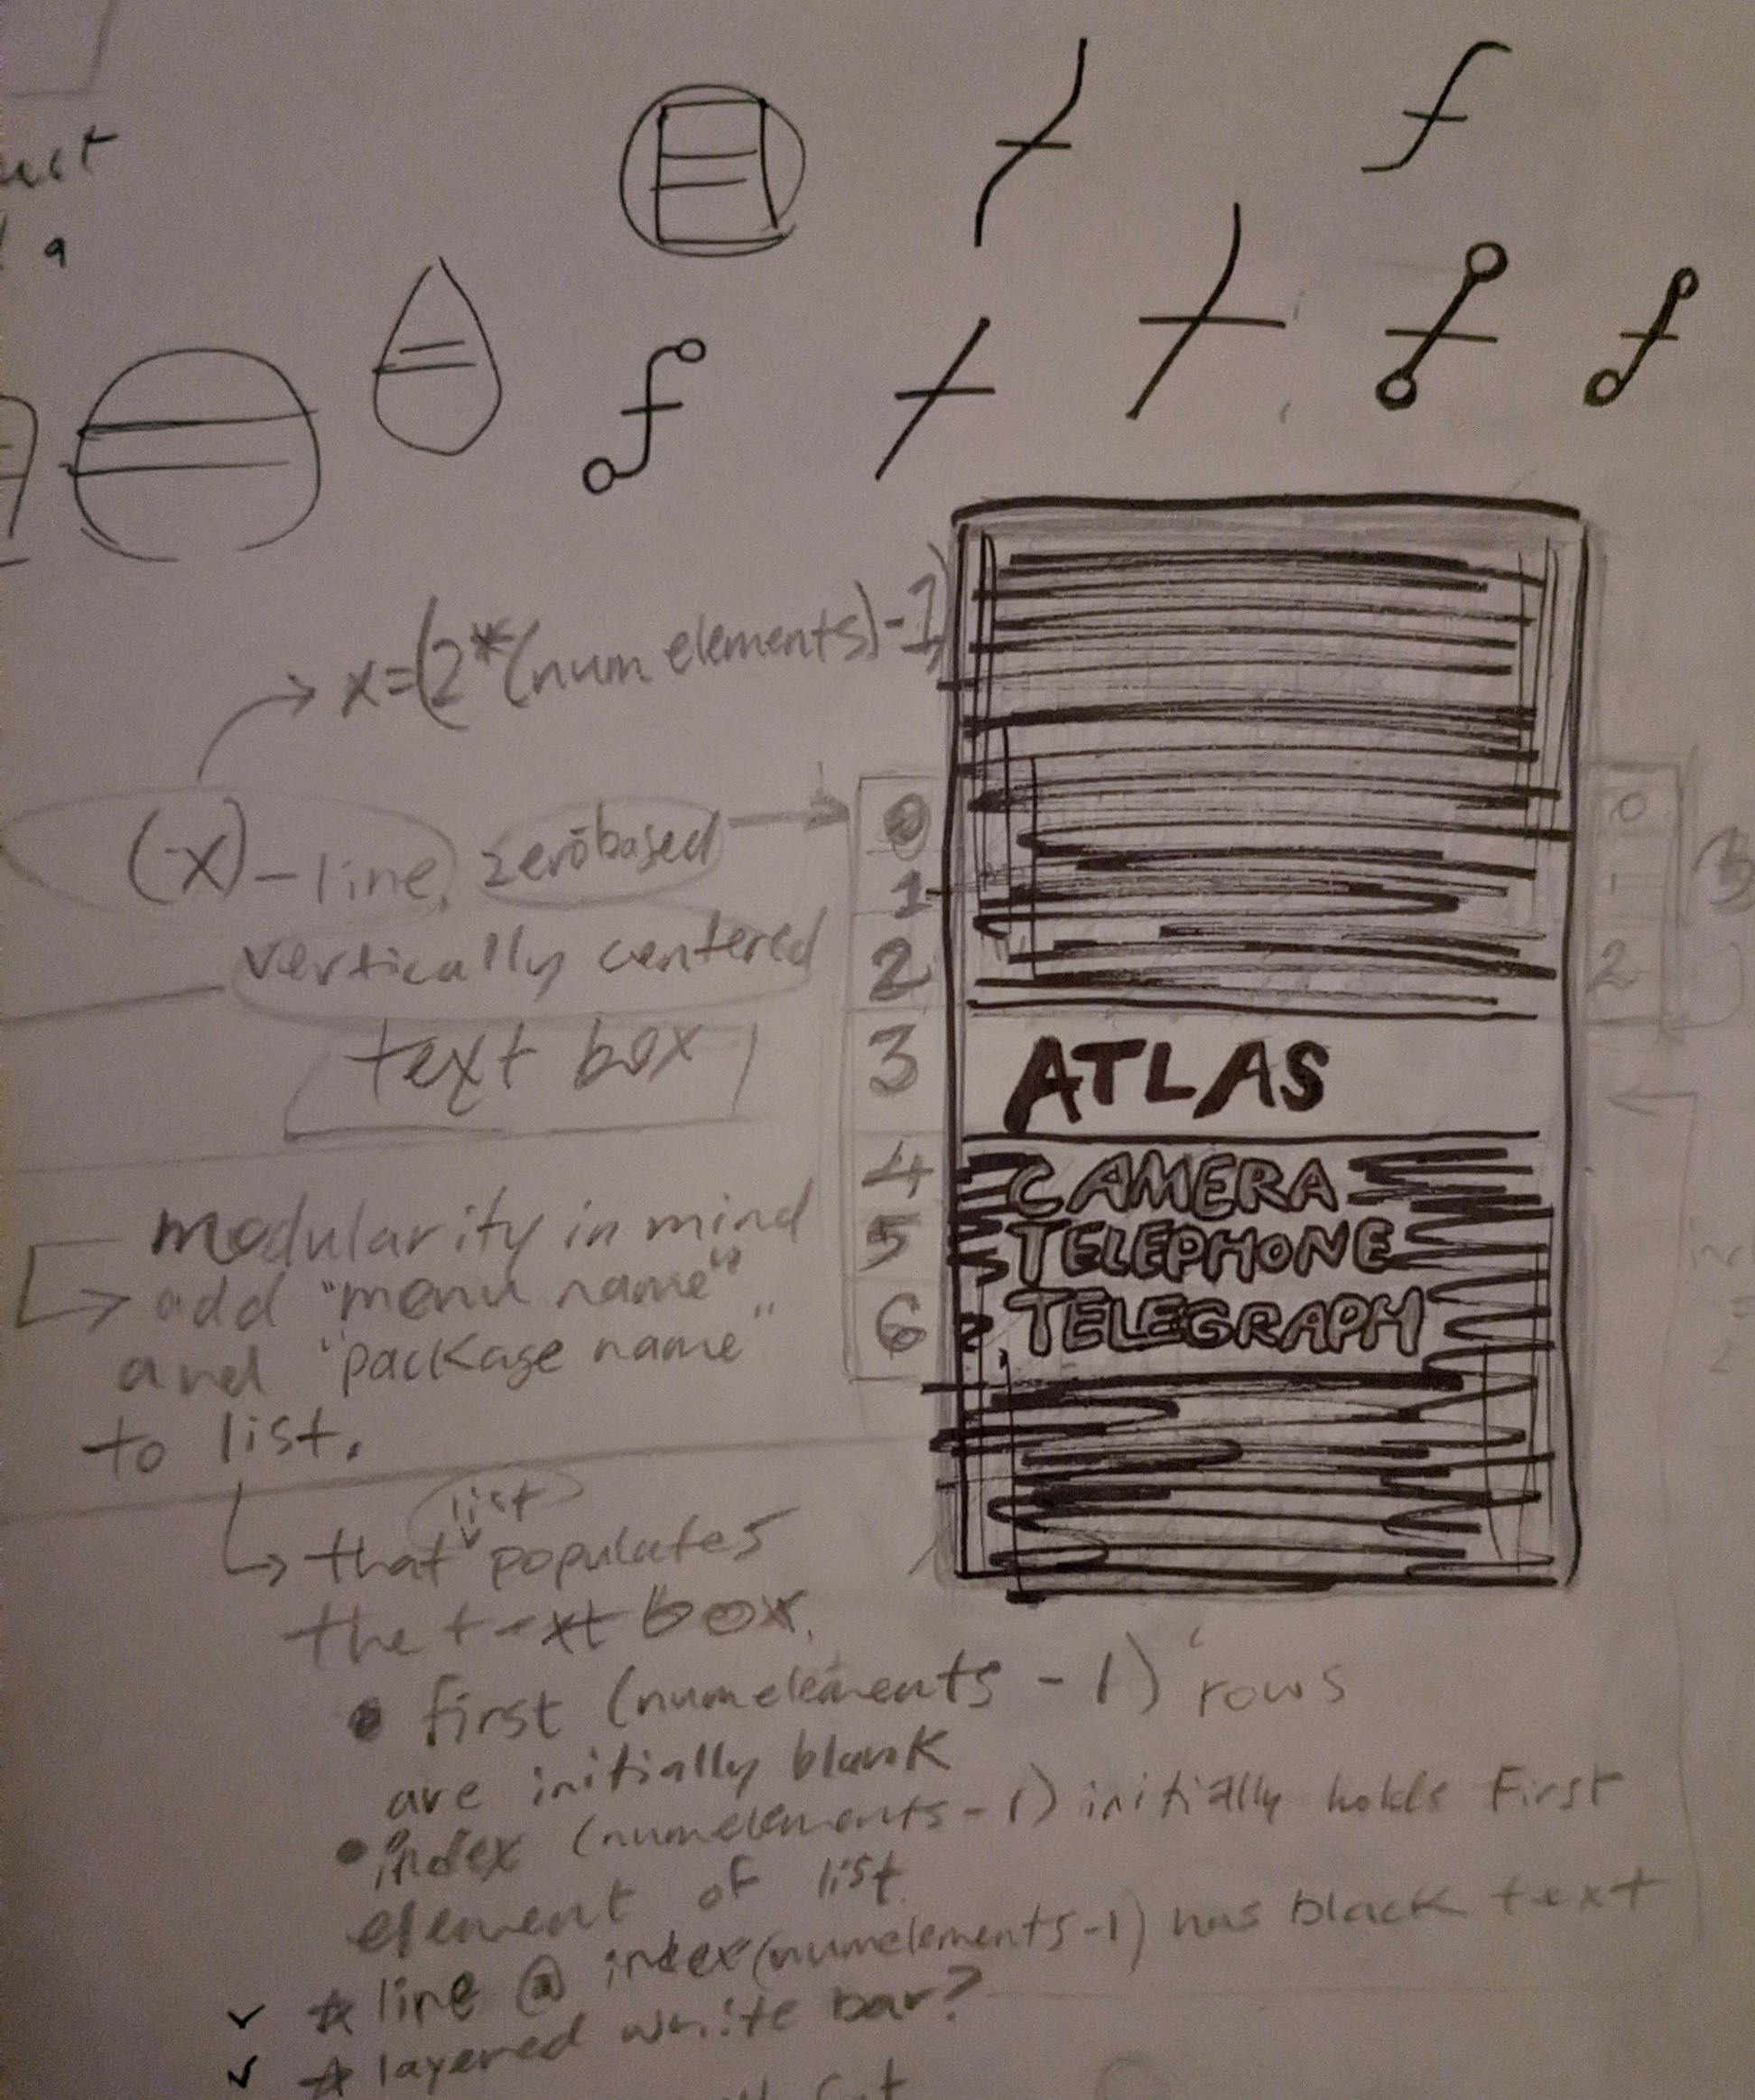 x=(2*(num elements)-1)
(x)-line, zero based
vertically centered
text box
0
1
2
3
4
5
6
0
1
2
ATLAS
CAMERA
TELEPHONE
TELEGRAPH
modularity in mind
add "menu name"
and "package name"
to list.
list
that populates
the text box.
• first (numelements - 1) rows
are initially blank
• index (numelements-1) initially holds first
element of list.
✓ ☆ line @ index (numelements-1) has black text
✓ ☆ layered white bar?